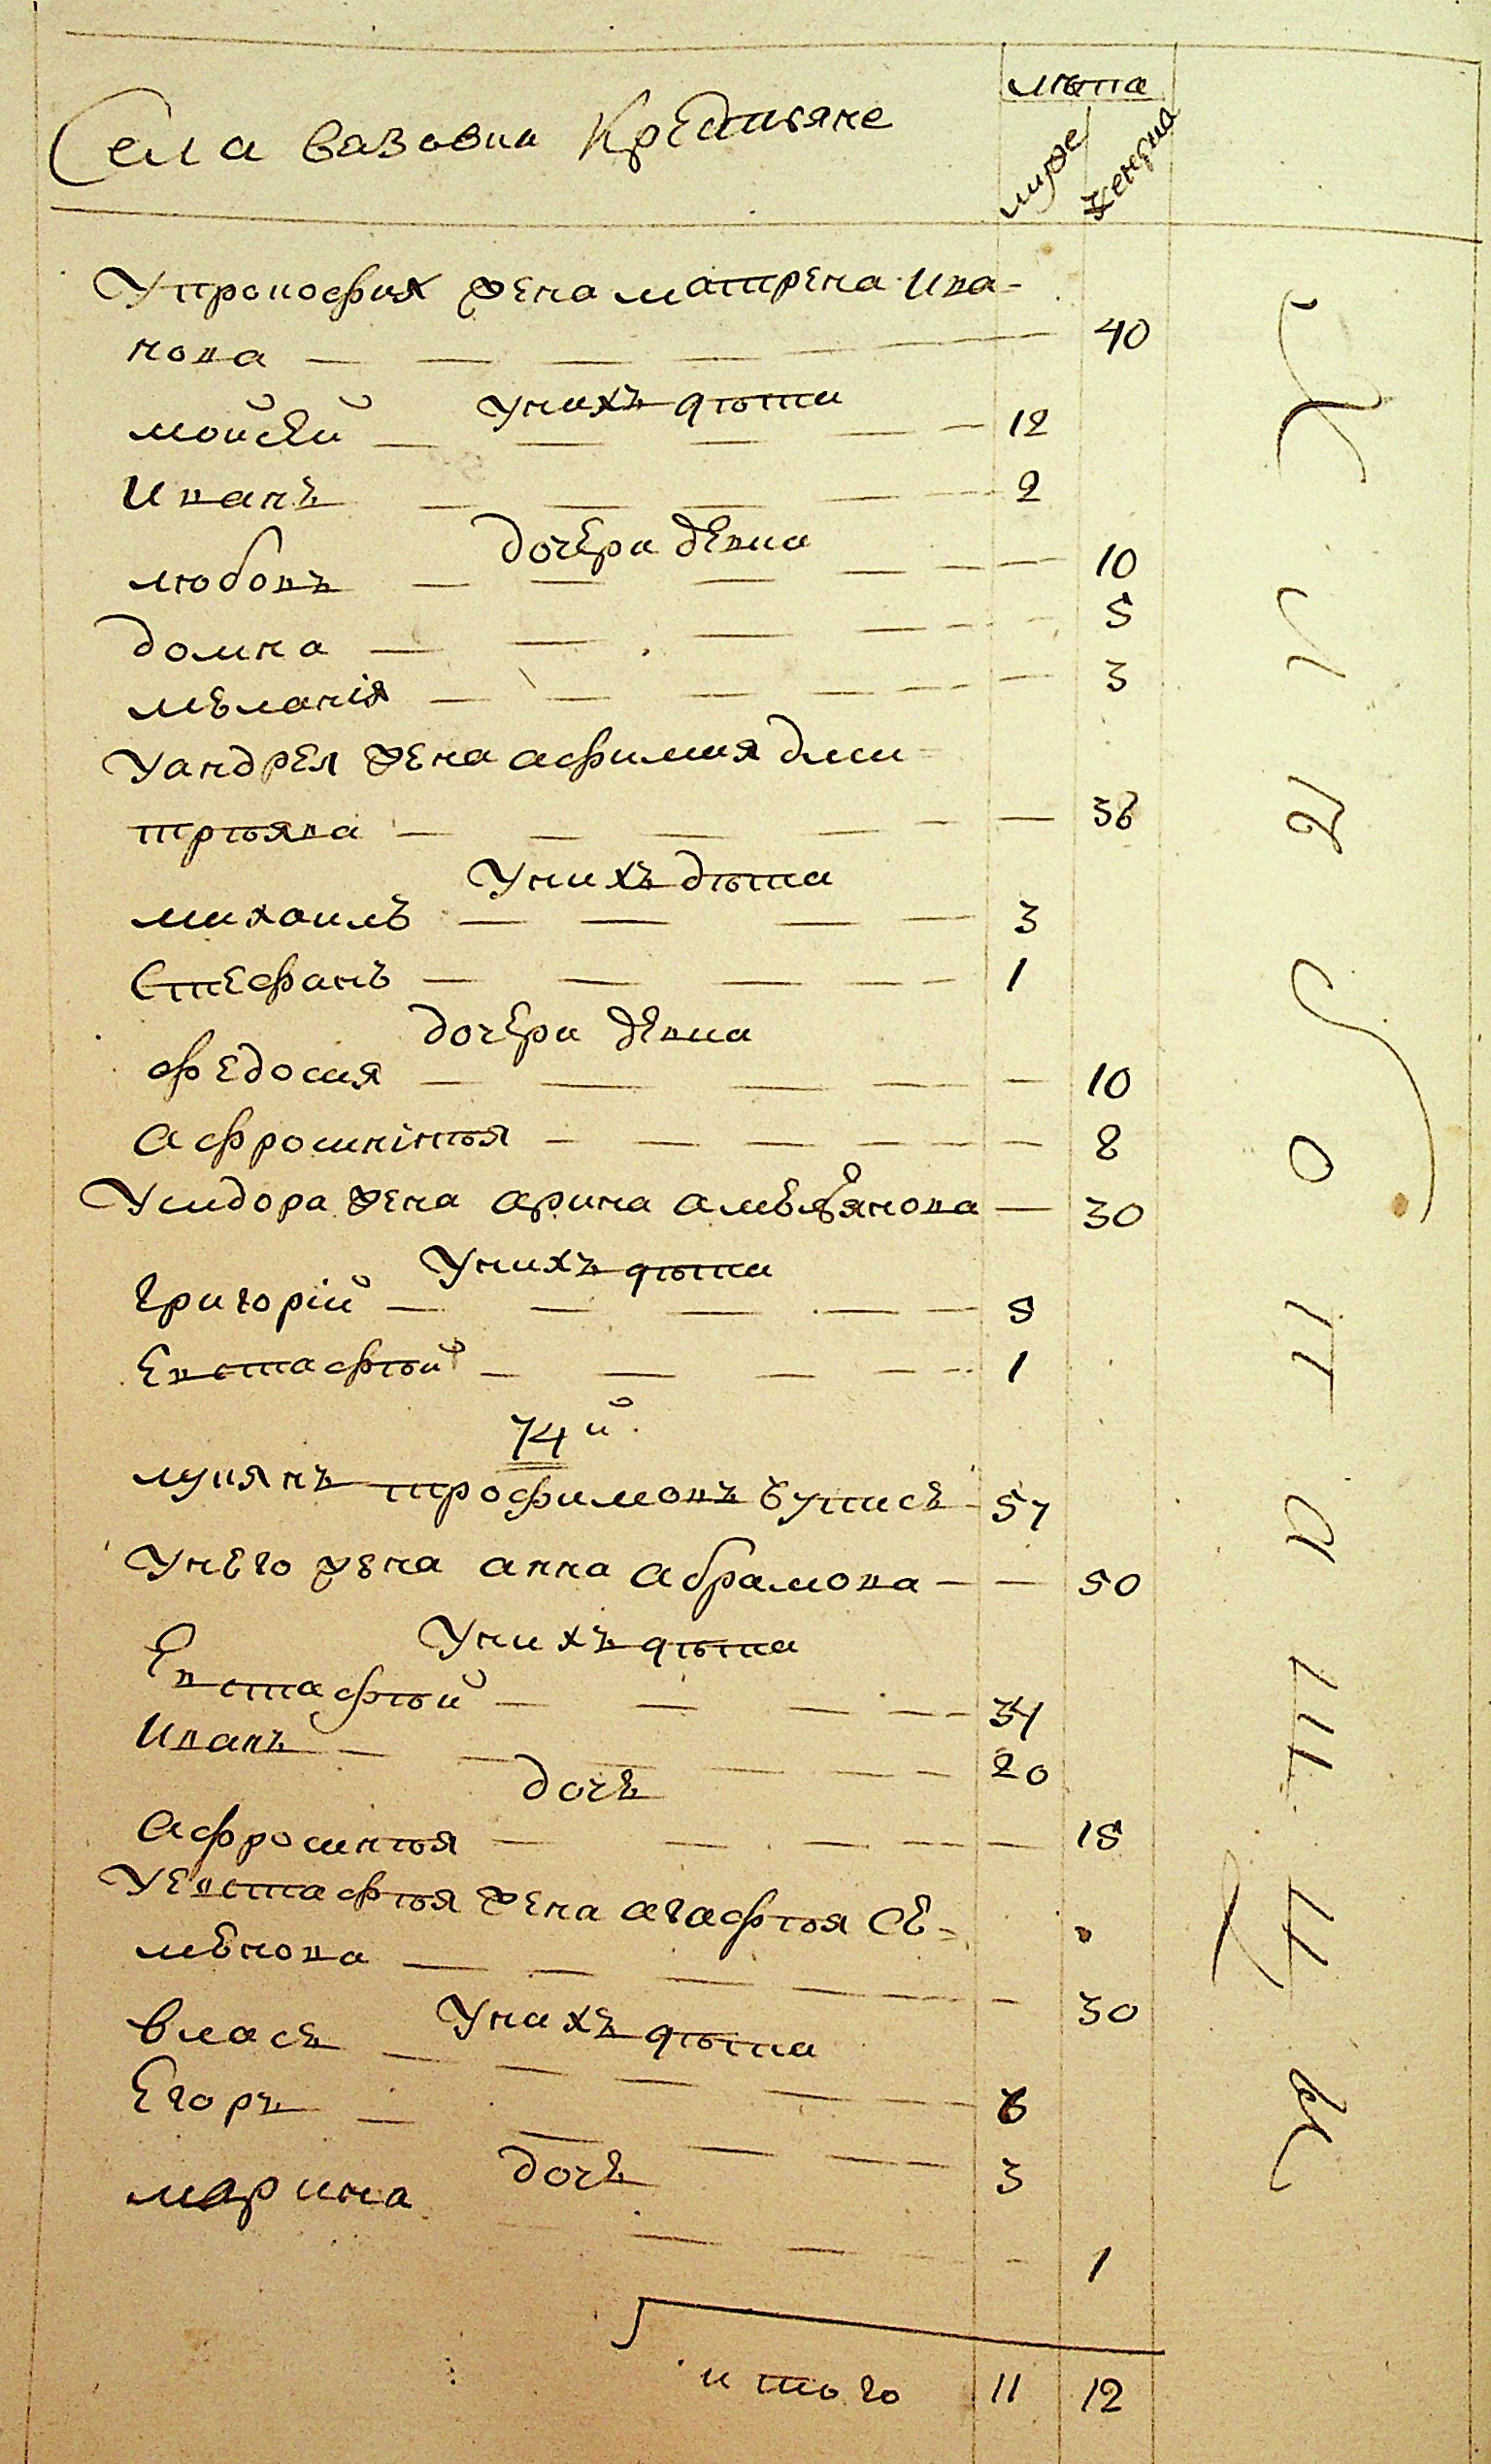 Села вазовки Крестьяне
лѣта
мужс
женска
У прокофия жена матрена ива-
нова — 40
У нихъ дѣти
мойсей — 12
Иванъ — 2
дочери девки
любовъ — 10
домна — 5
меланія — 3
У андрея жена афимия дми-
трьява — 38
У нихъ дѣти
михаилъ — 3
Стефанъ — 1
дочери девки
федосия — 10
Афросинінья — 8
У сидора жена арина амельянова — 30
У нихъ дѣти
Григорій — 5
Евстафьй — 1
74й
лукянъ трофимовъ — 57
У него жена анна абрамова — 50
У нихъ дѣти
Евстафьй — 34
Иванъ — 20
дочь
Афросинья — 15
У Евстафья жена агафья Се-
менова — 30
У нихъ дѣти
власъ — 6
Егоръ — 3
дочь
марина — 1
итого 11 12